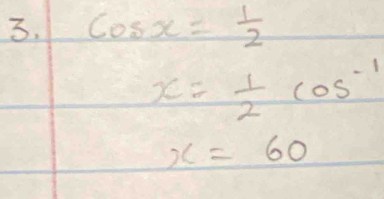 3. Cosx = 1/2
x = 1/2 cos⁻¹
x = 60